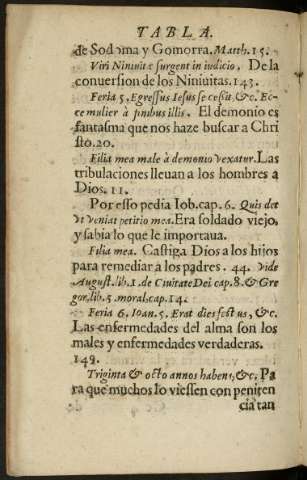 TABLA.
de Sodoma y Gomorra. Matth. 15.
Viri Niniuitæ surgent in iudicio, De la
conuersion de los Niniuitas. 143.
Feria 5. Egressus Iesus secessit, &c. Ec-
ce mulier à finibus illis. El demonio es
fantasma que nos haze buscar a Chri
sto. 20.
Filia mea male à demonio vexatur. Las
tribulaciones lleuan a los hombres a
Dios. 11.
Por esso pedia Iob. cap. 6. Quis det
vt veniat petitio mea. Era soldado viejo,
y sabia lo que le importaua.
Filia mea. Castiga Dios a los hijos
para remediar a los padres. 44. Vide
August. lib. 1. de Ciuitate Dei cap. 8. & Gre
gor. lib. 5. moral. cap. 14.
Feria 6. Ioan. 5. Erat dies festus, &c.
Las enfermedades del alma son los
males y enfermedades verdaderas.
149.
Triginta & octo annos habens, &c. Pa
ra que muchos lo viessen con peniten
cia tan